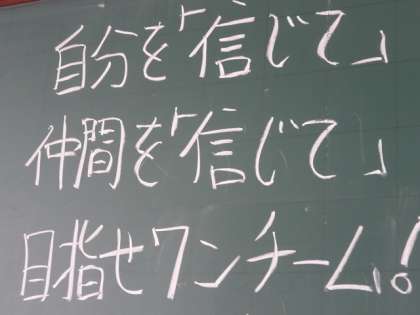 自分を「信じて」
仲間を「信じて」
目指せワンチーム!